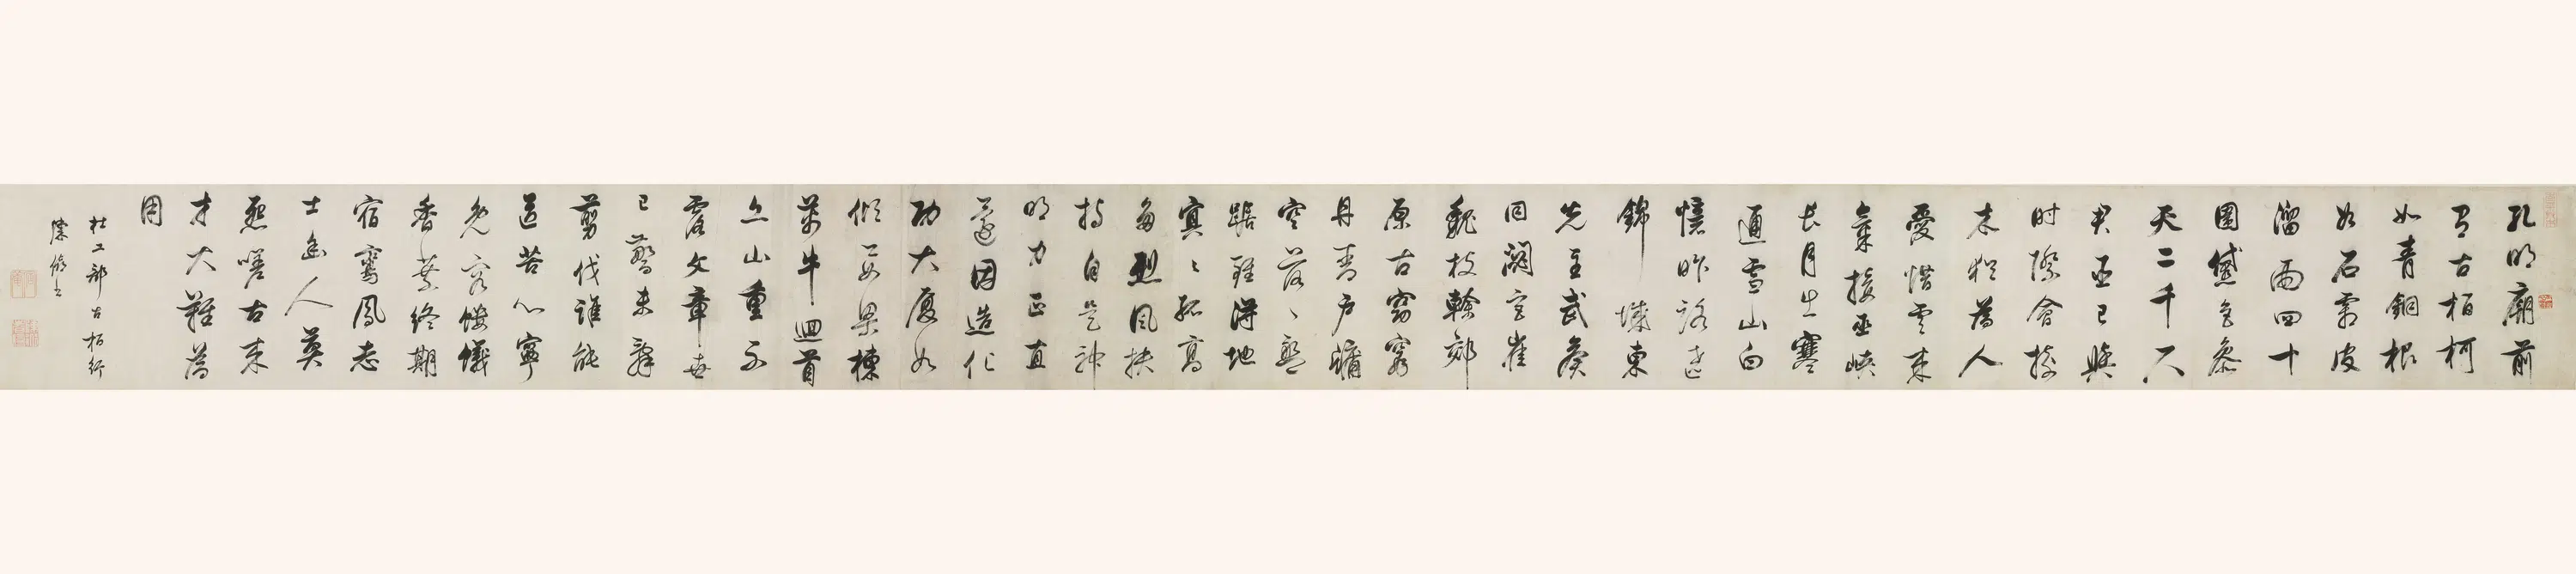 孔明廟前
有古柏柯
如青銅根
如石霜皮
溜雨四十
圍黛色參
天二千尺
君臣已與
時際會樹
木猶為人
愛惜雲來
氣接巫峽
長月出寒
通雪山白
憶昨路遶
錦城東
先主武侯
同閟宮崔
嵬枝幹郊
原古窈窕
丹青戶牖
空落落盤
踞雖得地
冥冥孤高
多烈風扶
持自是神
明力正直
因造化
功大廈如
傾要梁棟
萬牛迴首
丘山重不
露文章世
已驚未辭
剪伐誰能
送苦心寧
免容螻蟻
香葉終期
宿鸞鳳志
士幽人莫
怨嗟古來
才大難為
用
杜工部古柏行